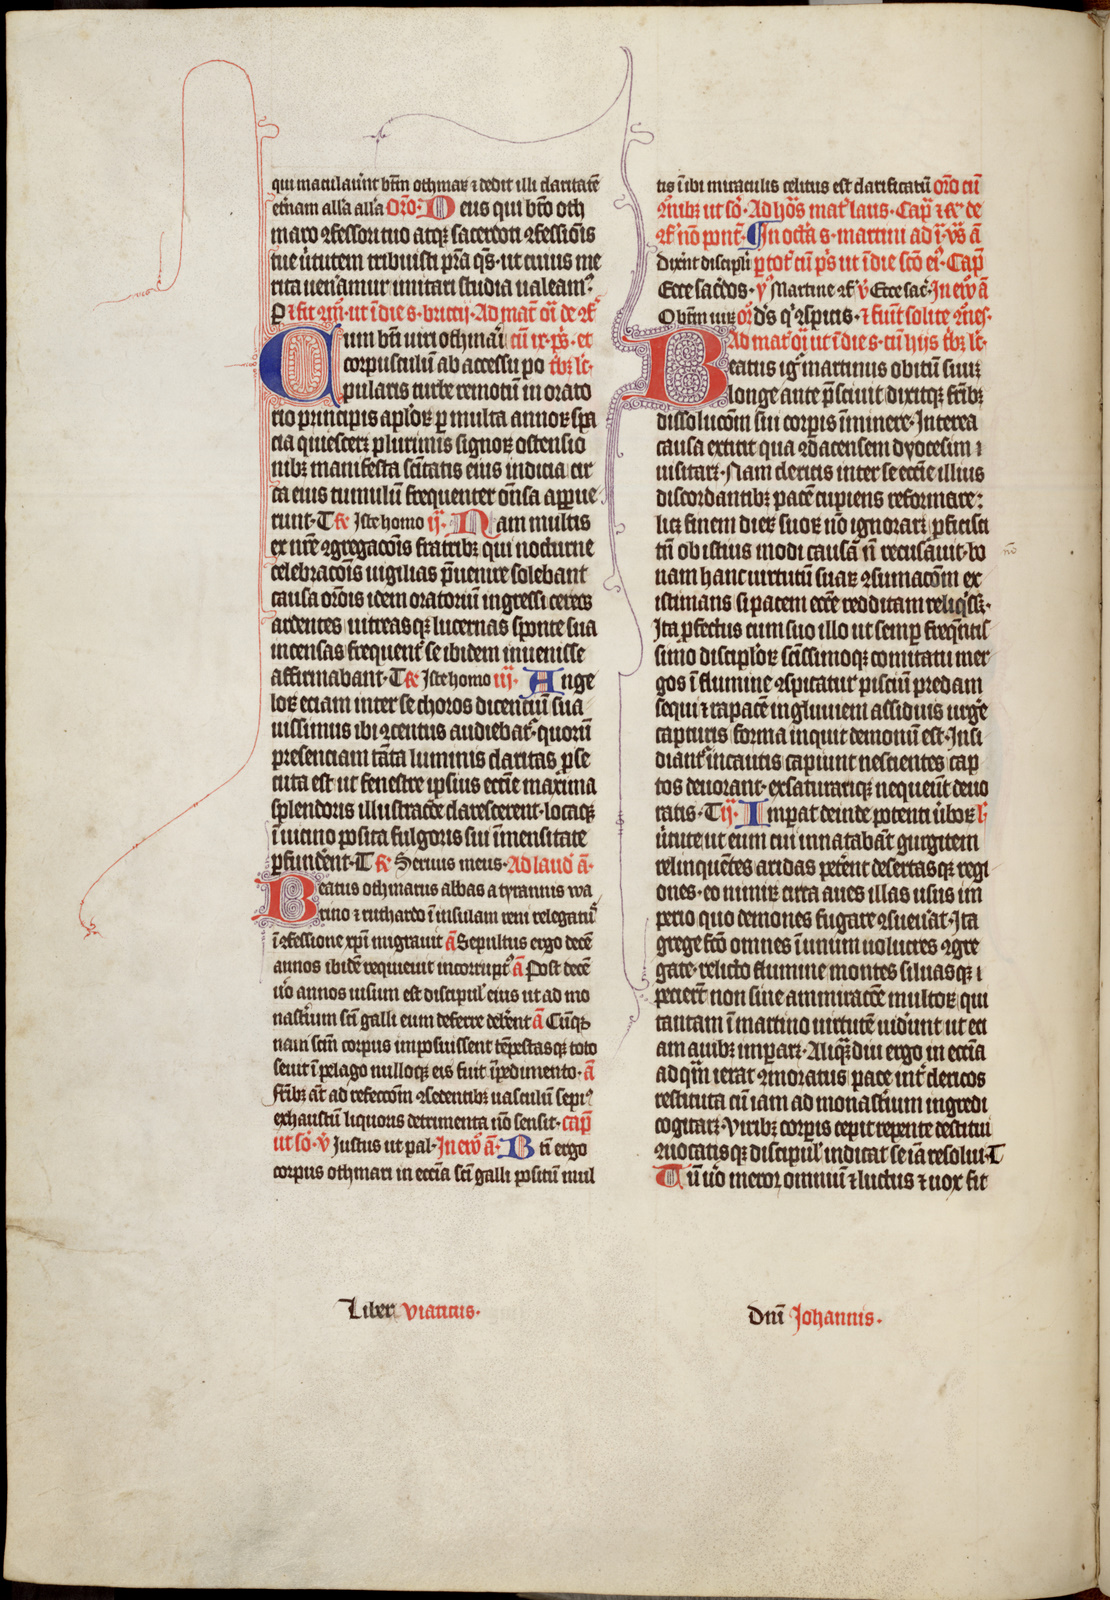 qui maculaūnt btm̄ othmaꝝ ⁊ dedit illi claritatē
et̓nam all̓a all̓a Oꝛo: Deus qui bt̄o oth
maro ꝯfessori tuo atqꝫ sacerdoti ꝯfessiōis
tue v̓tutem tribuisti pr̄a qs̄· ut cuius me
rita uen̓amur imitari studia ualeam⁹
Cum bt̄i uiri othmari cū ix· ps̄· et
corpusculum ab accessu po
pularis turbe remotum in orato
rio principis apl̓oꝝ ꝑ multa annoꝝ spa
cia quiesceret plurimis signoꝝ ostensio
nibꝫ manifesta sc̄itatis eius indicia cir
ca eius tumulū frequenter on̄sa appue
runt· T R̓ Iste homo ij· Nam multis
ex nr̄e ꝯgregacōis fratribꝫ qui nocturne
celebracōis uigilias p̄uenire solebant
causa orōis idem oratoriū ingressi cereos
ardentes uitreasqꝫ lucernas sponte sua
incensas frequent̓ se ibidem inuenisse
affirmabant· T R̓ Iste homo iij· Ange
loꝝ eciam inter se choros dicenciū sua
uissimus ibi ꝯcentus audiebat̓· quorū
presenciam tāta luminis claritas ꝓse
cuta est ut fenestre ipsius eccīe maxima
splendoris illustracōe clarescerent· locaqꝫ
ī uicino posita fulgoris sui īmensitate
ꝑfundent· T R̓ Seruus meus· Ad laud̓ ā·
Beatus othmarus abbas a tyrannis wa
rino ⁊ ruthardo ī insulam reni relegatu᷒
ī ꝯfessione xp̄i migrauit ā Sepultus ergo decē
annos ibidē requieuit incorrupt⁹ ā Post decē
u̓o annos uisum est discipul̓ eius ut ad mo
nast̓ium sc̄i galli eum deferre deb̓ent ā Cūqꝫ
nam sc̄m corpus imposuissent tēpestasqꝫ toto
seuit ī pelago nulloqꝫ eis fuit īpedimento· ā
fr̄ibꝫ āt ad refeccōm ꝯsedentibꝫ uasculū sepi⁹
exhaustū liquoris detrimenta nō sensit· cap̄
ut sō· v̓ Justus ut pal· In ew̄ ā· Bt̄i ergo
corpus othmari in eccīa sc̄i galli positū mul
tis ī ibi miraculis celitus est clarificatū oꝛo cū
In octā s· martini ad ī· vs̄ ā
Dixer̄t discipl̓i ꝑ tot̄ cū ps̄ ut ī die scō ei⁹· Cap̄
Ecce sac̓dos· v̓ Martine v̓ Ecce sac̓· In ew̄ ā
O btm̄ uiꝝ
Ad mat̓ oī ut ī die s· cū hijs tribꝫ lc̄·
Beatus ig̓ martinus obitū suuꝫ
longe ante p̄sciuit dixitqꝫ fr̄ibꝫ
dissolucōm sui corpis īminere· Interea
causa extitit qua ꝯdacensem dyocesim ī
uisitaret· Nam clericis inter se eccīe illius
discordantibꝫ pacē cupiens reformare:
licꝫ finem dieꝝ suoꝝ nō ignoraret ꝓficisci
tn̄ ob istius modi causā n̄ recusauit· bo
nam hanc uirtutū suaꝝ ꝯsumacōm ex
istimans si pacem eccīe redditam reliq̓sset·
Ita ꝓfectus cum suo illo ut semꝑ freq̄ntis
simo discipl̓oꝝ sc̄issimoqꝫ comitatu mer
gos ī flumine ꝯspicatur pisciū predam
sequi ⁊ rapacē ingluuiem assiduis urge
capturis forma inquit demonū est· Insi
diant̓ incautis capiunt nescientes cap
tos deuorant· exsaturariqꝫ nequeūt deuo
ratis· T ij· Impat deinde potenti u̓boꝝ
u̓tute ut eum cui innatabāt gurgitem
relinquētes aridas pet̓ent desertasqꝫ regi
ones· eo nimiꝝ circa aues illas usus im
perio quo demones fugare ꝯsueu̓at· Ita
grege fcō omnes ī unum uolucres ꝯgre
gate· relicto flumine montes siluasqꝫ
petier̄t non sine ammiracōe multoꝝ qui
tantam ī martino uirtutē uid̓unt ut eci
am auibꝫ impareret· Aliqꝫdiu ergo in eccīa
ad qm̄ ierat ꝯmoratus pace int̓ clericos
restituta cū iam ad monast̓ium ingredi
cogitaret· viribꝫ corꝑis cepit repente destitui
ꝯuocatisqꝫ discipul̓ indicat se iā resolui· T
Tū u̓o meror omniū ⁊ luctus ⁊ uox fit
Liber viaticus·
Dn̄i Johannis·